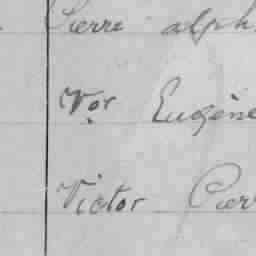 Pierre alph
Vor Eugène
Victor Pierr